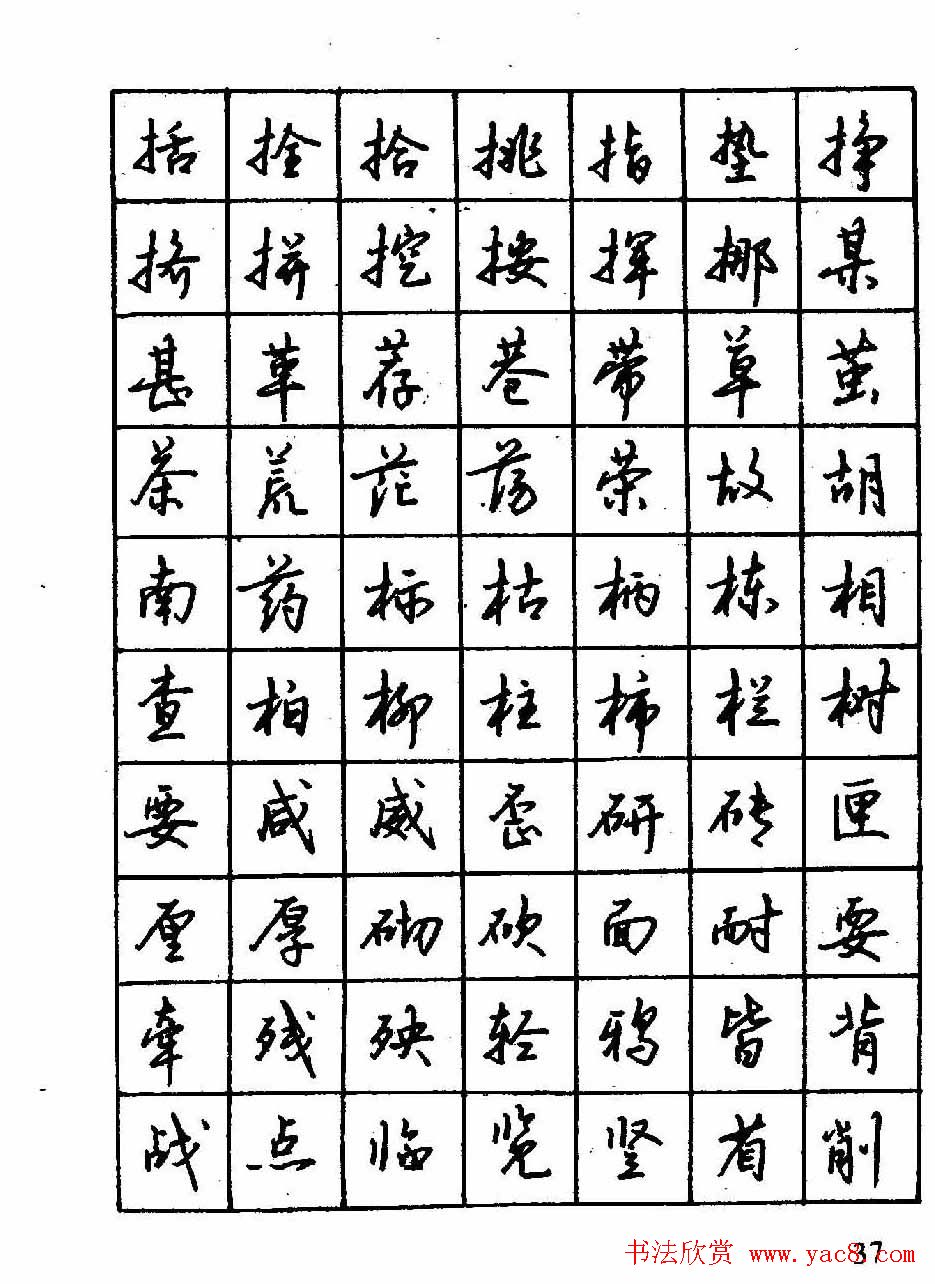 括 拴 拾 挑 指 垫 挣
挤 拼 挖 按 挥 挪 某
甚 革 荐 巷 带 草 茧
茶 荒 茫 荡 荣 故 胡
南 药 标 枯 柄 栋 相
查 柏 柳 柱 柿 栏 树
要 咸 威 歪 研 砖 匣
厘 厚 砌 砍 面 耐 耍
牵 残 殃 轻 鸦 皆 背
战 点 临 览 竖 省 削
37
书法欣赏 www.yac8.com